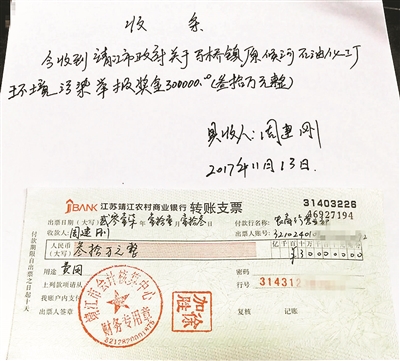 收 条
今收到靖江市政府关于马桥镇原侯河石油化工厂
环境污染举报奖金300000.00(叁拾万元整)
具收人:周建刚
2017年11月13日.
BANK 江苏靖江农村商业银行 转账支票
31403226
46927194
出票日期(大写) 贰零壹柒年 壹拾壹月 壹拾叁日
付款行名称:
收款人:周建刚
出票人账号:3210240
人民币(大写) 叁拾万元整
亿千百十万千百十元角分
¥30000000
用途 费用
密码
上列款项请从
行号 31431
我账户内支付
出票人签章
复核 记账
付款期限自出票之日起十天
靖江市会计核算中心
财务专用章
徐胜加